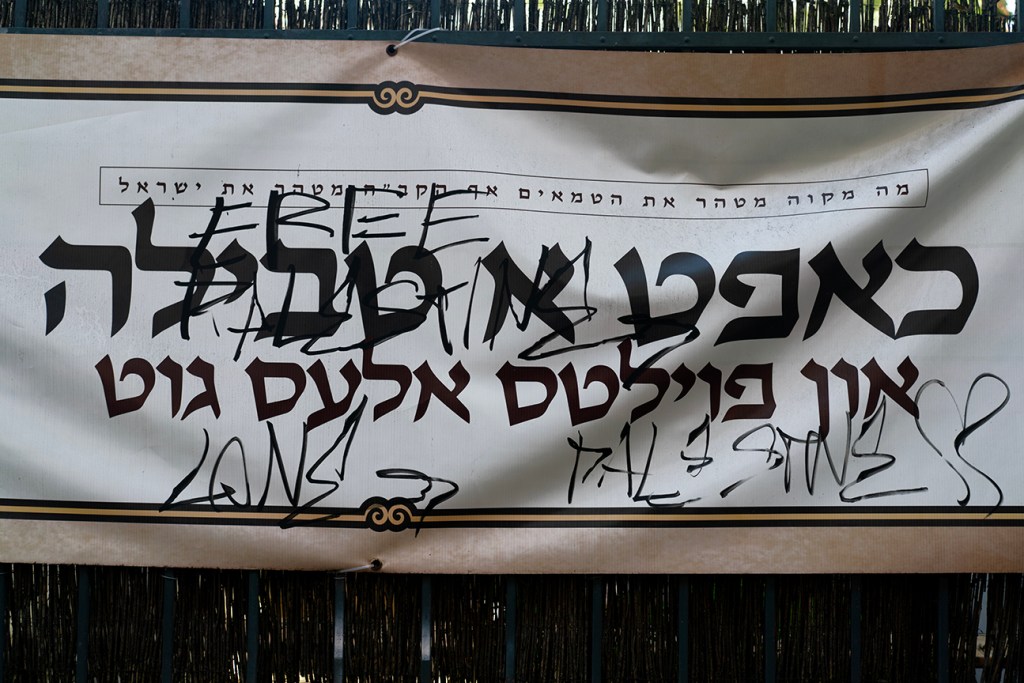 מה מקוה מטהר את הטמאים אף הקב"ה מטהר את ישראל
FREE
כאפט א טבילה
PALESTINE
און פוילטס אלעס גוט
LONG
PALESTINE